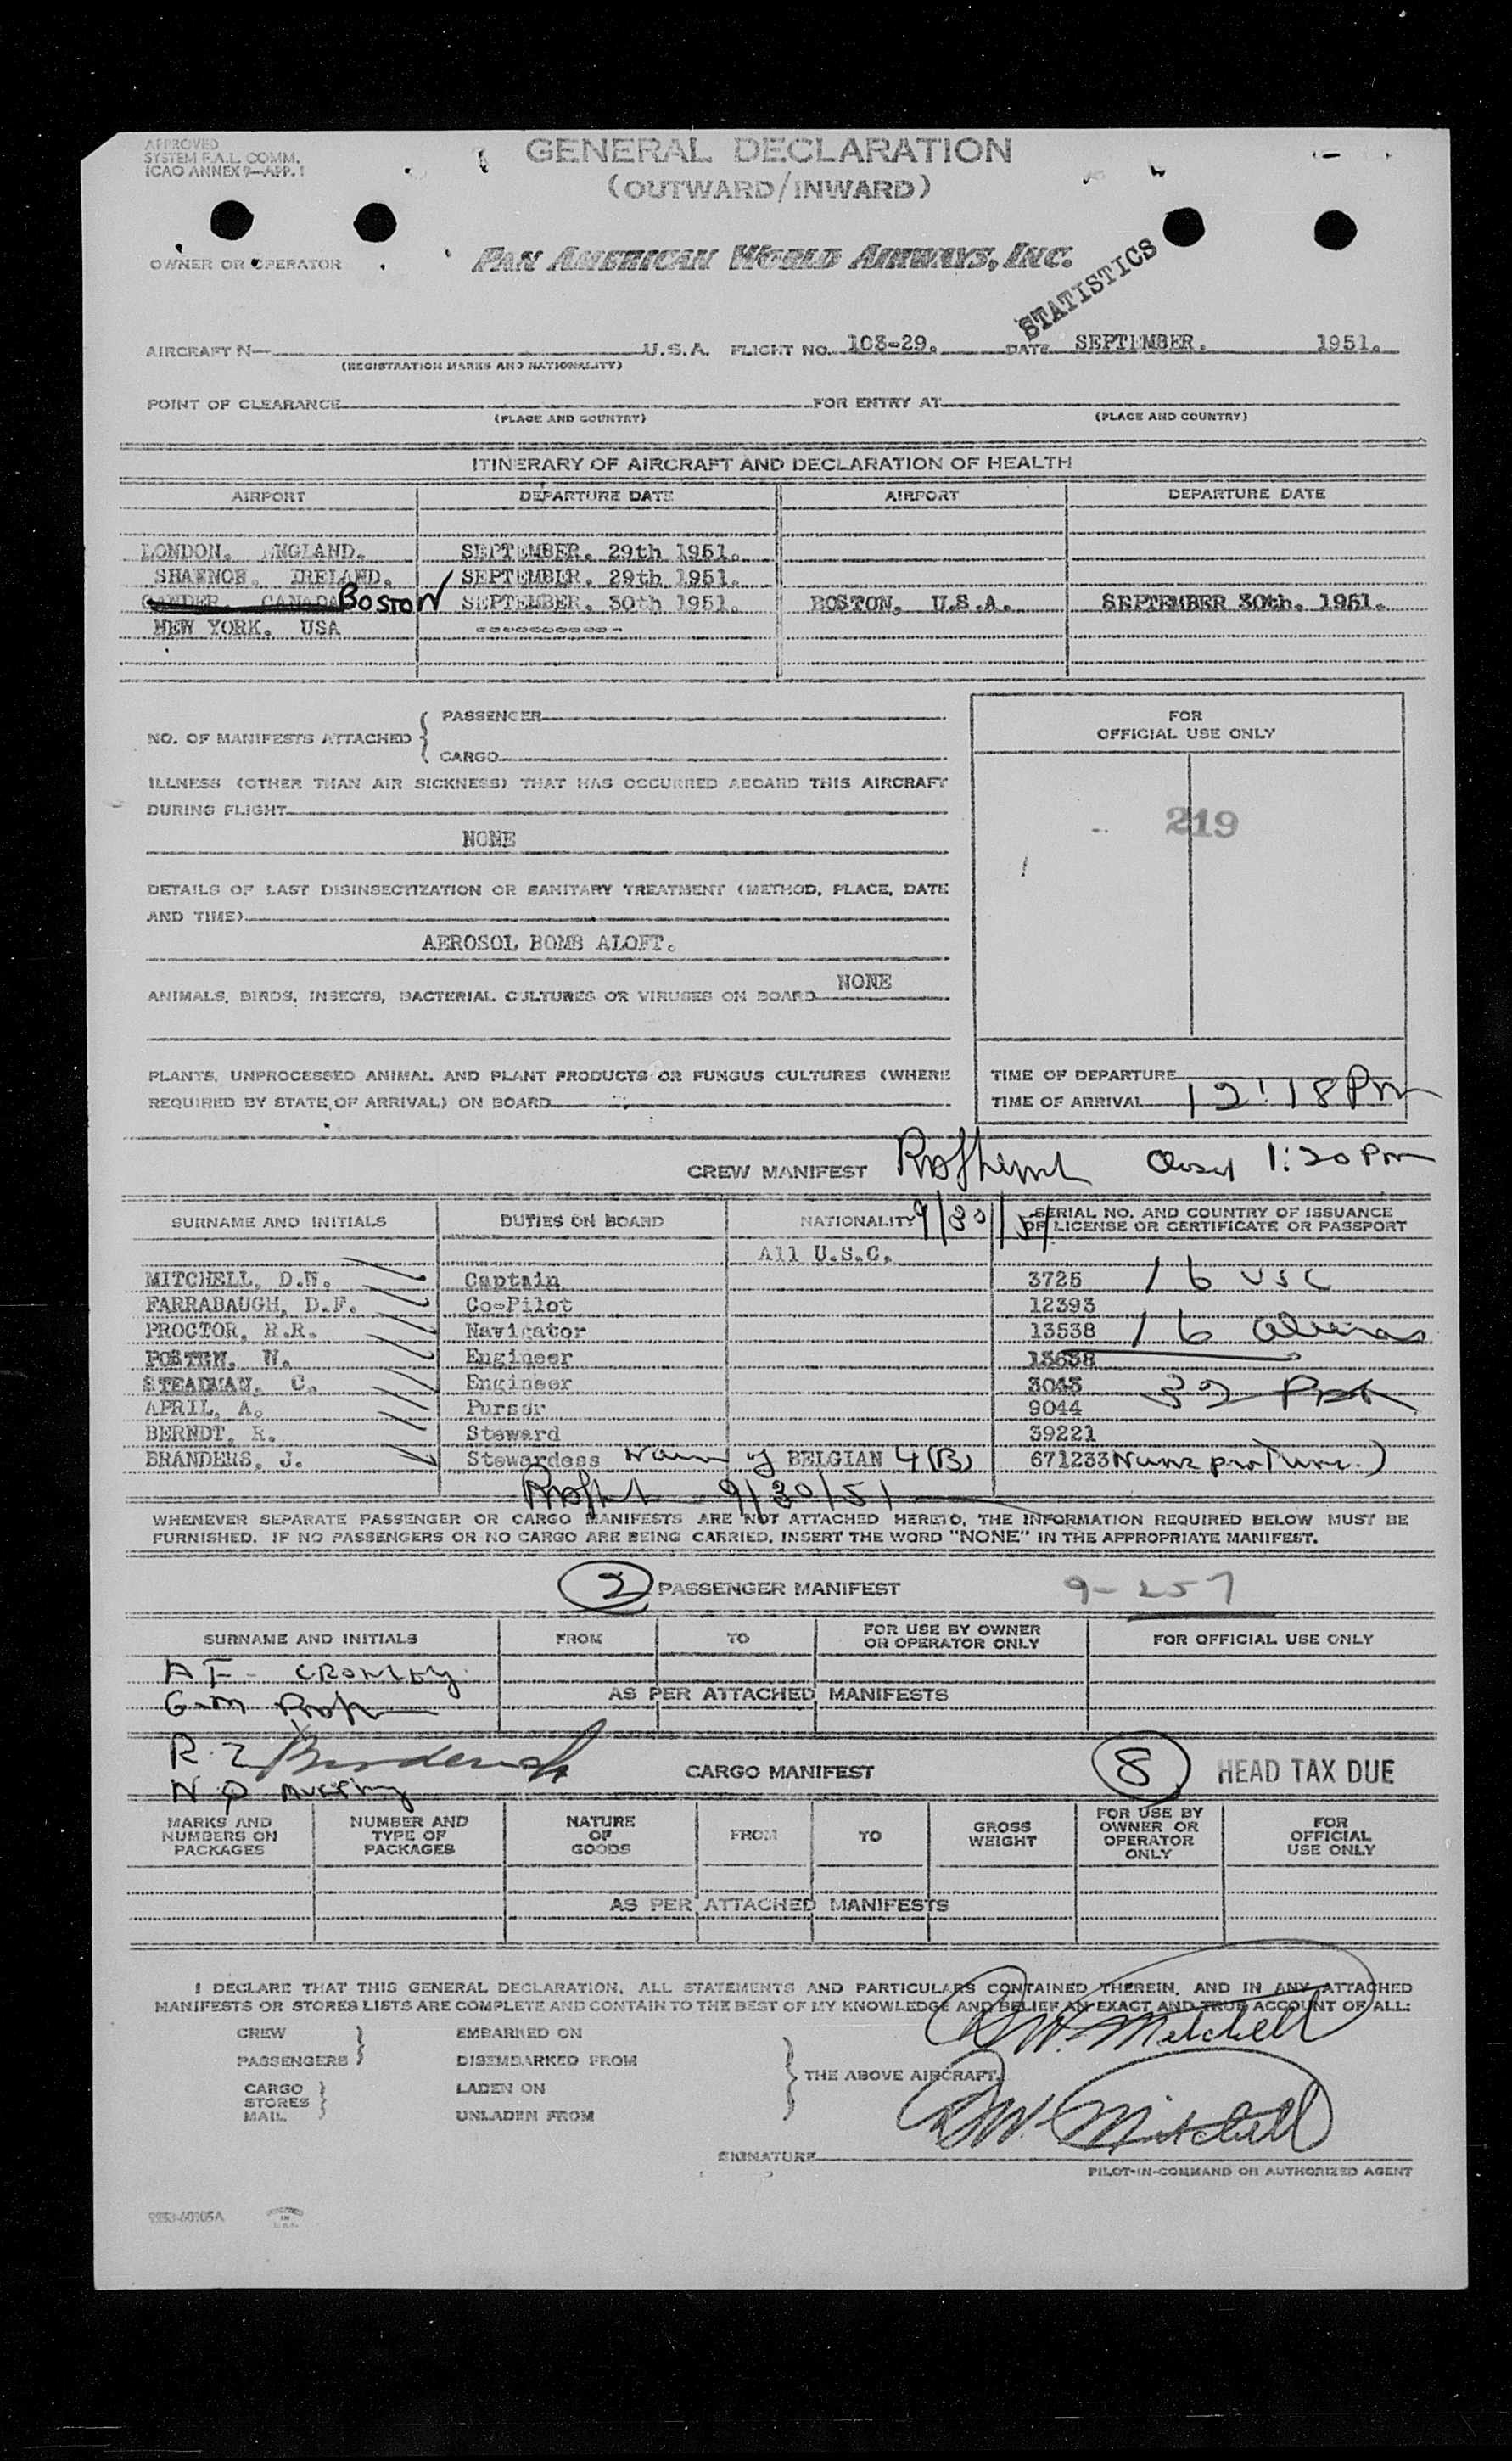 APPROVED
SYSTEM F.A.L. COMM.
ICAO ANNEX 9—APP. 1
GENERAL DECLARATION
(OUTWARD/INWARD)
OWNER OR OPERATOR PAN AMERICAN WORLD AIRWAYS, INC.
STATISTICS
AIRCRAFT N— U.S.A. FLIGHT NO. 103-29. DATE SEPTEMBER. 1951.
(REGISTRATION MARKS AND NATIONALITY)
POINT OF CLEARANCE FOR ENTRY AT
(PLACE AND COUNTRY) (PLACE AND COUNTRY)
ITINERARY OF AIRCRAFT AND DECLARATION OF HEALTH
AIRPORT DEPARTURE DATE AIRPORT DEPARTURE DATE
LONDON. ENGLAND. SEPTEMBER. 29th 1951.
SHANNON. IRELAND. SEPTEMBER. 29th 1951.
GANDER. CANADA BOSTON SEPTEMBER. 30th 1951. BOSTON, U.S.A. SEPTEMBER 30th. 1951.
NEW YORK. USA
NO. OF MANIFESTS ATTACHED { PASSENGER
CARGO
FOR
OFFICIAL USE ONLY
ILLNESS (OTHER THAN AIR SICKNESS) THAT HAS OCCURRED ABOARD THIS AIRCRAFT
DURING FLIGHT
219
NONE
DETAILS OF LAST DISINSECTIZATION OR SANITARY TREATMENT (METHOD, PLACE, DATE
AND TIME)
AEROSOL BOMB ALOFT.
ANIMALS, BIRDS, INSECTS, BACTERIAL CULTURES OR VIRUSES ON BOARD NONE
PLANTS, UNPROCESSED ANIMAL AND PLANT PRODUCTS OR FUNGUS CULTURES (WHERE
REQUIRED BY STATE OF ARRIVAL) ON BOARD
TIME OF DEPARTURE
TIME OF ARRIVAL 12:18 Pm
CREW MANIFEST Closed 1:20 Pm
9/30/51
SURNAME AND INITIALS DUTIES ON BOARD NATIONALITY SERIAL NO. AND COUNTRY OF ISSUANCE
OF LICENSE OR CERTIFICATE OR PASSPORT
All U.S.C.
MITCHELL, D.W. Captain 3725 16 USC
FARRABAUGH, D.F. Co-Pilot 12393
PROCTOR, R.R. Navigator 13538 16 aliens
POSTEN, W. Engineer 13638
STEADMAN, C. Engineer 3043 32
APRIL, A. Purser 9044
BERNDT, R. Steward 39221
BRANDERS, J. Stewardess BELGIAN 4(B) 671233
9/30/51
WHENEVER SEPARATE PASSENGER OR CARGO MANIFESTS ARE NOT ATTACHED HERETO, THE INFORMATION REQUIRED BELOW MUST BE
FURNISHED. IF NO PASSENGERS OR NO CARGO ARE BEING CARRIED, INSERT THE WORD "NONE" IN THE APPROPRIATE MANIFEST.
2 PASSENGER MANIFEST 9-257
SURNAME AND INITIALS FROM TO FOR USE BY OWNER
OR OPERATOR ONLY FOR OFFICIAL USE ONLY
A F- CROWLEY
G M
AS PER ATTACHED MANIFESTS
R. Z Broderick
N P Murphy
CARGO MANIFEST 8 HEAD TAX DUE
MARKS AND
NUMBERS ON
PACKAGES
NUMBER AND
TYPE OF
PACKAGES
NATURE
OF
GOODS
FROM
TO
GROSS
WEIGHT
FOR USE BY
OWNER OR
OPERATOR
ONLY
FOR
OFFICIAL
USE ONLY
AS PER ATTACHED MANIFESTS
I DECLARE THAT THIS GENERAL DECLARATION, ALL STATEMENTS AND PARTICULARS CONTAINED THEREIN, AND IN ANY ATTACHED
MANIFESTS OR STORES LISTS ARE COMPLETE AND CONTAIN TO THE BEST OF MY KNOWLEDGE AND BELIEF AN EXACT AND TRUE ACCOUNT OF ALL:
DW. Mitchell
CREW
PASSENGERS }
EMBARKED ON
DISEMBARKED FROM
CARGO
STORES
MAIL }
LADEN ON
UNLADEN FROM
} THE ABOVE AIRCRAFT.
DW. Mitchell
SIGNATURE
PILOT-IN-COMMAND OR AUTHORIZED AGENT